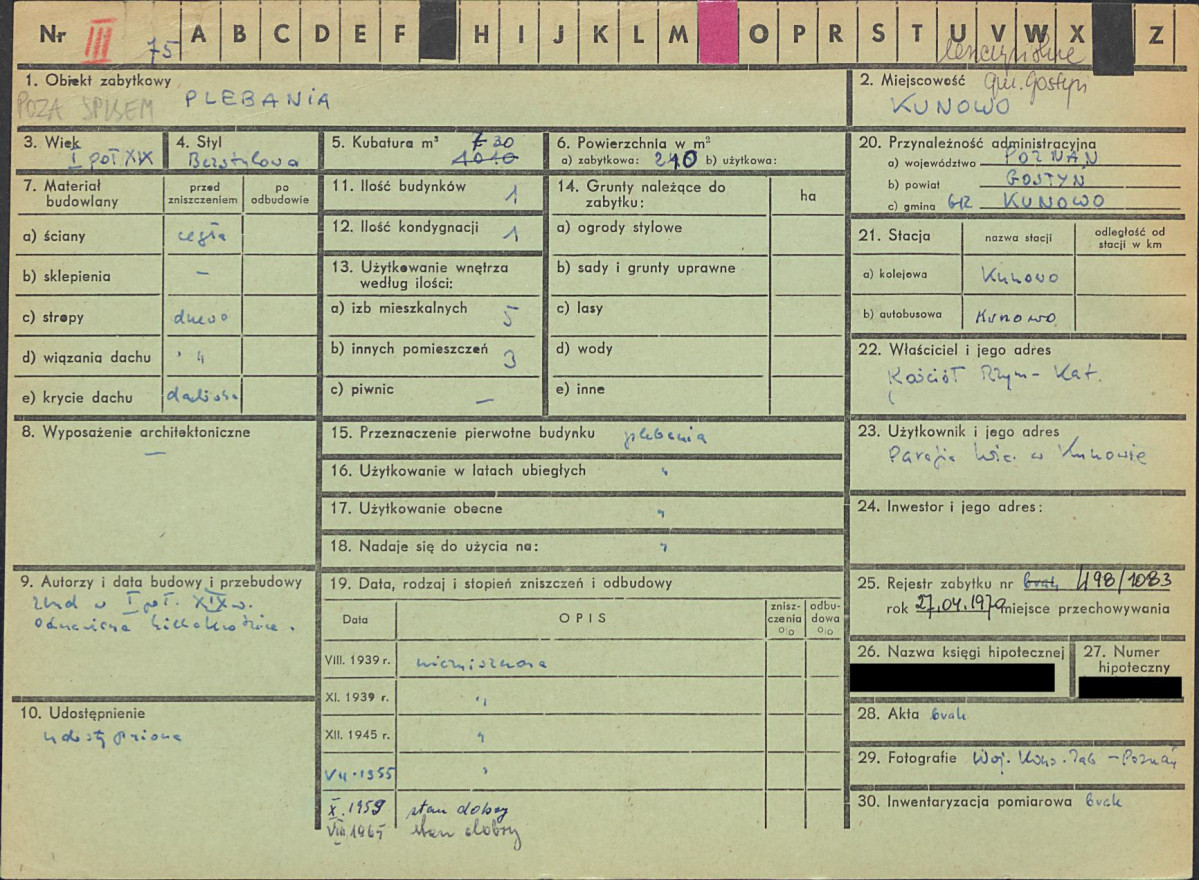 Nr III 75 A B C D E F H I J K L M O P R S T U V W X Z
leszczyńskie
1. Obiekt zabytkowy
POZA SPISEM PLEBANIA
2. Miejscowość gm. Gostyń
KUNOWO
3. Wiek
I poł XIX
4. Styl
Bezstylowa
5. Kubatura m³ 730
1010
6. Powierzchnia w m²
a) zabytkowa: 210 b) użytkowa:
7. Materiał budowlany
przed zniszczeniem
po odbudowie
a) ściany cegła
b) sklepienia –
c) stropy drewo
d) wiązania dachu "
e) krycie dachu dachówka
8. Wyposażenie architektoniczne
–
9. Autorzy i data budowy i przebudowy
zbud w I poł. XIX w.
Odnawiana kilkakrotnie.
10. Udostępnienie
udostępniona
11. Ilość budynków 1
12. Ilość kondygnacji 1
13. Użytkowanie wnętrza
według ilości:
a) izb mieszkalnych 5
b) innych pomieszczeń 3
c) piwnic –
14. Grunty należące do
zabytku:
ha
a) ogrody stylowe
b) sady i grunty uprawne
c) lasy
d) wody
e) inne
15. Przeznaczenie pierwotne budynku plebania
16. Użytkowanie w latach ubiegłych "
17. Użytkowanie obecne "
18. Nadaje się do użycia na: "
19. Data, rodzaj i stopień zniszczeń i odbudowy
Data
OPIS
znisz-
czenia
%
odbu-
dowa
%
VIII. 1939 r. niezniszczona
XI. 1939 r. "
XII. 1945 r. "
VII. 1955 "
X. 1959 stan dobry
VIII 1965 stan dobry
20. Przynależność administracyjna
a) województwo POZNAŃ
b) powiat GOSTYŃ
c) gmina GR KUNOWO
21. Stacja
nazwa stacji
odległość od
stacji w km
a) kolejowa Kunowo
b) autobusowa Kunowo
22. Właściciel i jego adres
Kościół Rzym-Kat.
23. Użytkownik i jego adres
Parafia w Kunowie
24. Inwestor i jego adres:
25. Rejestr zabytku nr brak 498/1083
rok 27.04.1970 miejsce przechowywania
26. Nazwa księgi hipotecznej
27. Numer
hipoteczny
28. Akta brak
29. Fotografie Woj. Kons. Zab – Poznań
30. Inwentaryzacja pomiarowa brak